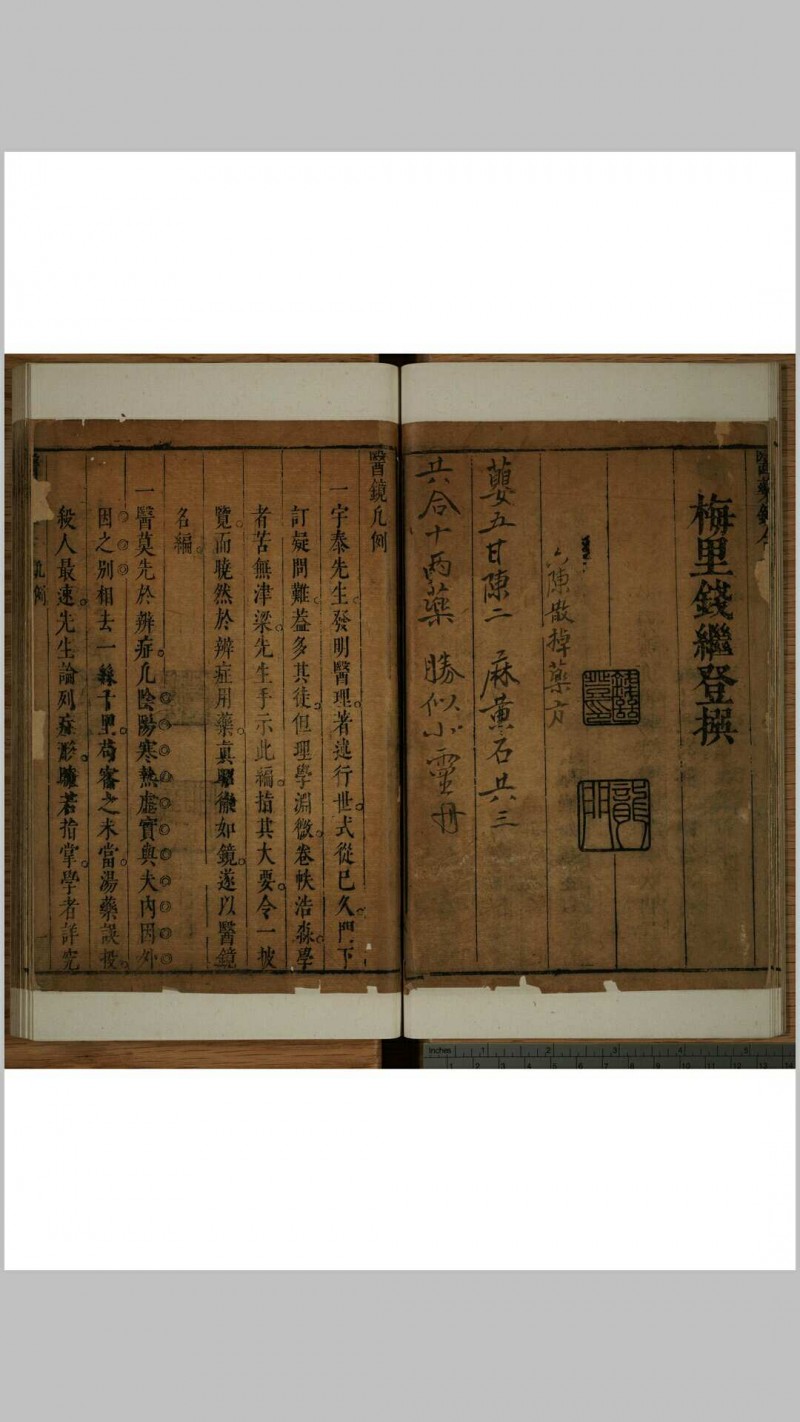 梅里錢繼登撰
六陳散掉藥方
龍門
薑五甘陳二 麻黄石共三
共合十兩藥 勝似小靈丹
醫鏡凡例
一宇泰先生發明醫理著述行世式從已久門下
訂疑問難葢多其徒但理學淵微卷帙浩森學
者苦無津梁先生手示此編揩其大要令一披
覽而曉然於辨症用藥真朗徹如鏡遂以醫鏡
名編
一醫莫先於辨症凡陰陽寒熱虛實與夫内因外
因之别相去一絲千里苟審之未當湯藥誤投
殺人最速先生論列症形瞭若指掌學者詳究